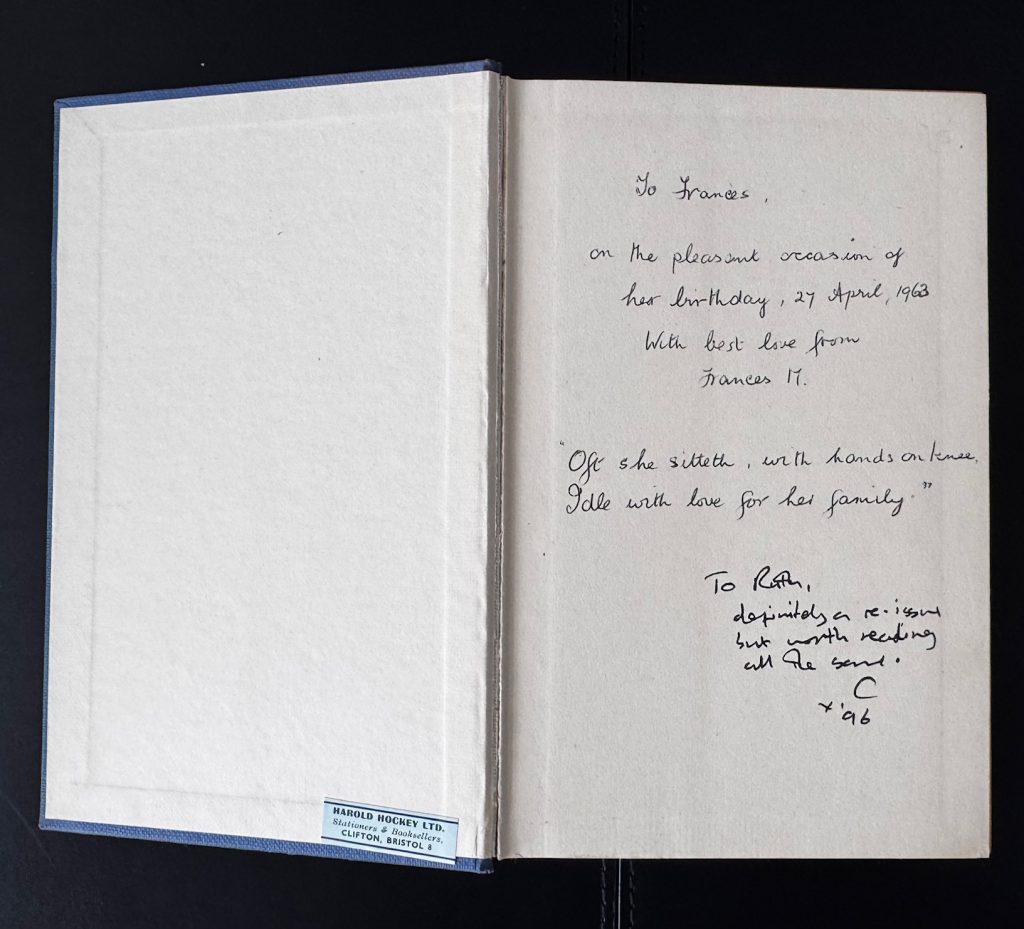 To Frances,
on the pleasant occasion of
her birthday, 27 April, 1963
With best love from
Frances M.
"Oft she sitteth, with hands on knee,
Idle with love for her family."
To Ruth,
definitely a re-issue
but worth reading
all the same.
C
x '96
HAROLD HOCKEY LTD.
Stationers & Booksellers,
CLIFTON, BRISTOL 8